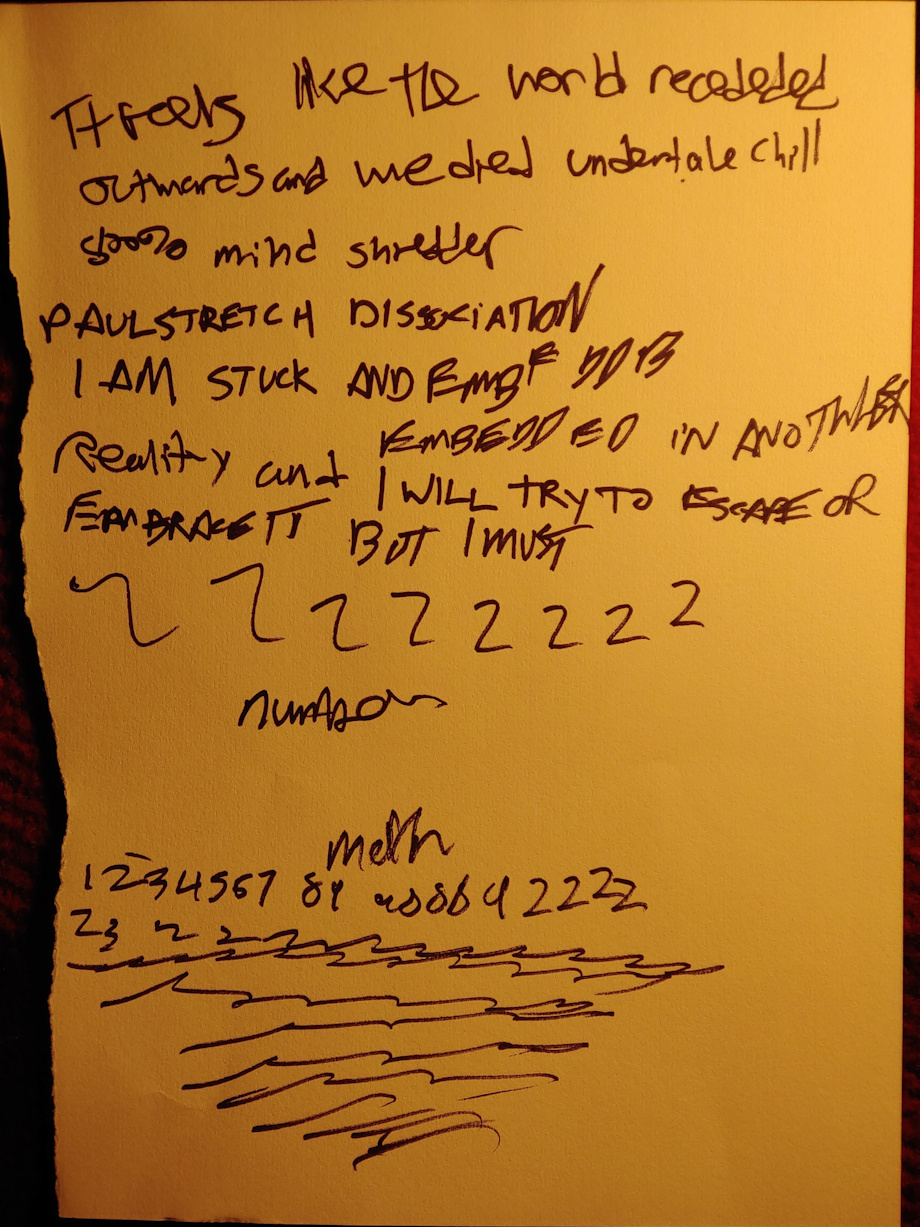 It feels like the world recededed
outwards and we died undertale chill
500% mind shredder
PAULSTRETCH DISSOCIATION
I AM STUCK AND EMBE DDB
Reality and EMBEDDED IN ANOTHER
EMBRACE IT I WILL TRY TO ESCAPE OR
BUT I MUST
2 2 2 2 2 2 2 2
math
1234567 89 222z
23 2 2 2